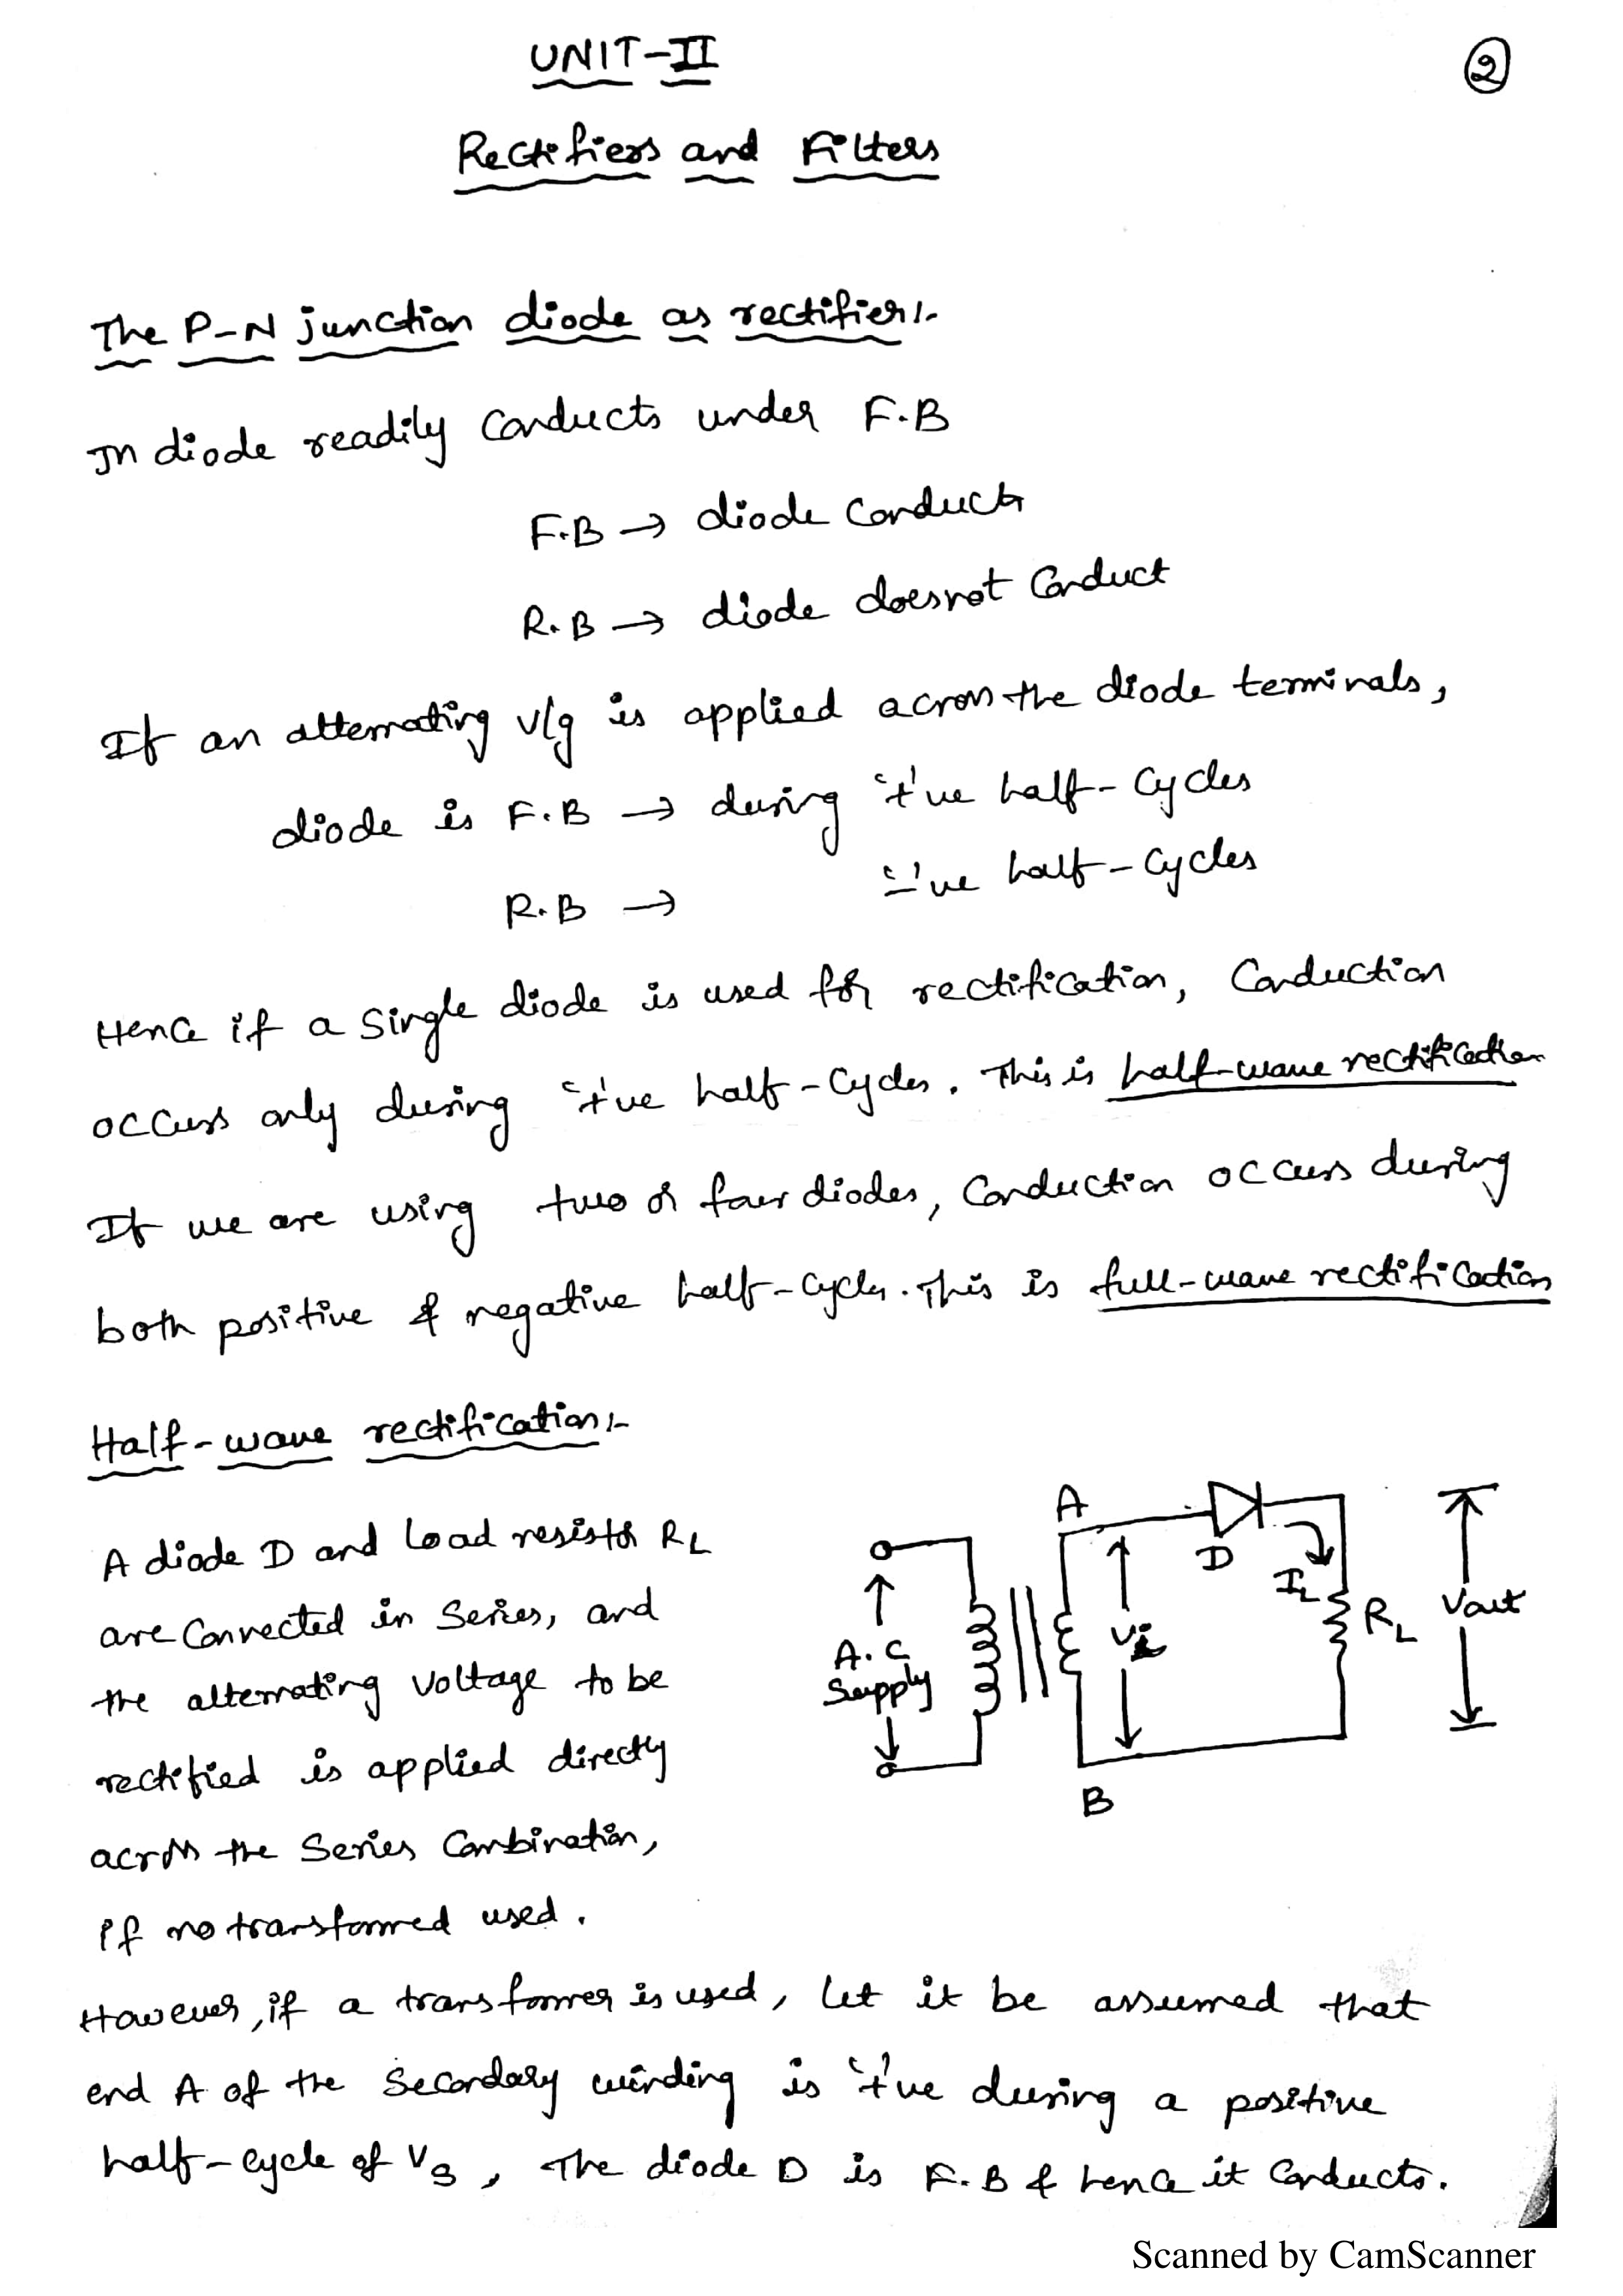 UNIT-II
2
Rectifiers and Filters
The P-N junction diode as rectifier:-
In diode readily conducts under F.B
F.B → diode conducts
R.B → diode doesnot conduct
If an alternating v/g is applied across the diode terminals,
diode is F.B → during '+'ve half-cycles
R.B → '-'ve half-cycles
Hence if a single diode is used for rectification, conduction
occurs only during '+'ve half-cycles. This is half-wave rectification
If we are using two or four diodes, conduction occurs during
both positive & negative half-cycles. This is full-wave rectification
Half-wave rectification:-
A diode D and load resistor RL
are connected in series, and
the alternating voltage to be
rectified is applied directly
across the series combination,
if no transformed used.
A
D
IL
RL
Vout
A.C
Supply
Vi
B
However, if a transformer is used, let it be assumed that
end A of the secondary winding is '+'ve during a positive
half-cycle of Vs, The diode D is F.B & hence it conducts.
Scanned by CamScanner